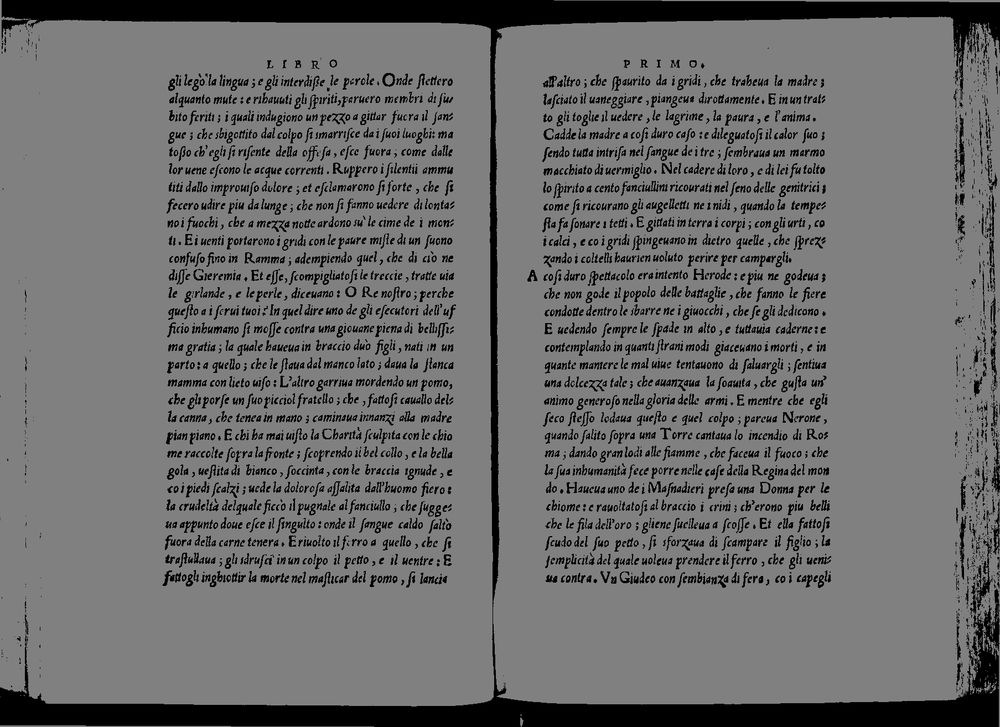 LIBRO
gli legò la lingua; e gli interdiſſe le parole. Onde ſtettero
alquanto mute: e ribauuti gli ſpiriti, paruero membri di ſu⸗
bito feriti; i quali indugiono un pezzo a gittar fuora il ſan⸗
gue; che sbigottito dal colpo ſi smarriſce da i ſuoi luoghi: ma
toſto ch'egli ſi riſente della offeſa, eſce fuora; come dalle
lor uene eſcono le acque correnti. Ruppero i ſilentii ammu
titi dallo improuiſo dolore; et eſclamarono ſi forte, che ſi
fecero udire piu da lunge; che non ſi fanno uedere di lonta⸗
no i fuochi, che a mezza notte ardono su'le cime de i mon⸗
ti. E i uenti portarono i gridi con le paure miſte di un ſuono
confuſo fino in Ramma; adempiendo quel, che di ciò ne
diſſe Gieremia. Et eſſe, ſcompigliatoſi le treccie, tratte uia
le girlande, e le perle, diceuano: O Re noſtro; perche
queſto a i ſerui tuoi? In quel dire uno de gli eſecutori dell'uf
ficio inhumano ſi moſſe contra una giouane piena di belliſſi⸗
ma gratia; la quale haueua in braccio duo figli, nati in un
parto: a quello; che le ſtaua dal manco lato; daua la ſtanca
mamma con lieto uiſo: L'altro garriua mordendo un pomo,
che gli porſe un ſuo picciol fratello; che, fattoſi cauallo del⸗
la canna, che tenea in mano; caminaua innanzi alla madre
pian piano. E chi ha mai uiſto la Charità ſculpita con le chio
me raccolte ſopra la fronte; ſcoprendo il bel collo, e la bella
gola, ueſtita di bianco, ſoccinta, con le braccia ignude, e
co i piedi ſcalzi; uede la doloroſa aſſalita dall'huomo fiero:
la crudeltà delquale ficcò il pugnale al fanciullo; che ſugge⸗
ua appunto doue eſce il ſingulto: onde il ſangue caldo ſaltò
fuora della carne tenera. E riuolto il ferro a quello, che ſi
traſtullaua; gli sdruſcì in un colpo il petto, e il uentre: E
fattogli inghiottir la morte nel maſticar del pomo, ſi lancia
PRIMO.
all'altro; che ſpaurito da i gridi, che traheua la madre;
laſciato il uaneggiare, piangeua dirottamente. E in un trat⸗
to gli toglie il uedere, le lagrime, la paura, e l'anima.
Cadde la madre a coſi duro caſo: e dileguatoſi il calor ſuo;
ſendo tutta intriſa nel ſangue de i tre; ſembraua un marmo
macchiato di uermiglio. Nel cadere di loro, e di lei fu tolto
lo ſpirito a cento fanciullini ricourati nel ſeno delle genitrici;
come ſi ricourano gli augelletti ne i nidi, quando la tempe⸗
ſta fa ſonare i tetti. E gittati in terra i corpi; con gli urti, co
i calci, e co i gridi ſpingeuano in dietro quelle, che ſprez⸗
zando i coltelli haurien uoluto perire per campargli.
A coſi duro ſpettacolo era intento Herode: e piu ne godeua;
che non gode il popolo delle battaglie, che fanno le fiere
condotte dentro le sbarre ne i giuochi, che ſe gli dedicono.
E uedendo ſempre le ſpade in alto, e tuttauia caderne: e
contemplando in quanti ſtrani modi giaceuano i morti, e in
quante maniere le mal uiue tentauono di ſaluargli; ſentiua
una dolcezza tale; che auanzaua la ſoauità, che guſta un'
animo generoſo nella gloria delle armi. E mentre che egli
ſeco ſteſſo lodaua queſto e quel colpo; pareua Nerone,
quando ſalito ſopra una Torre cantaua lo incendio di Ro⸗
ma; dando gran lodi alle fiamme, che faceua il fuoco; che
la ſua inhumanità fece porre nelle caſe della Regina del mon
do. Haueua uno de i Maſnadieri preſa una Donna per le
chiome: e rauoltatoſi al braccio i crini; ch'erono piu belli
che le fila dell'oro; gliene ſuelleua a ſcoſſe. Et ella fattoſi
ſcudo del ſuo petto, ſi sforzaua di ſcampare il figlio; la
ſemplicità del quale uoleua prendere il ferro, che gli ueni⸗
ua contra. Vn Giudeo con ſembianza di fera, co i capegli